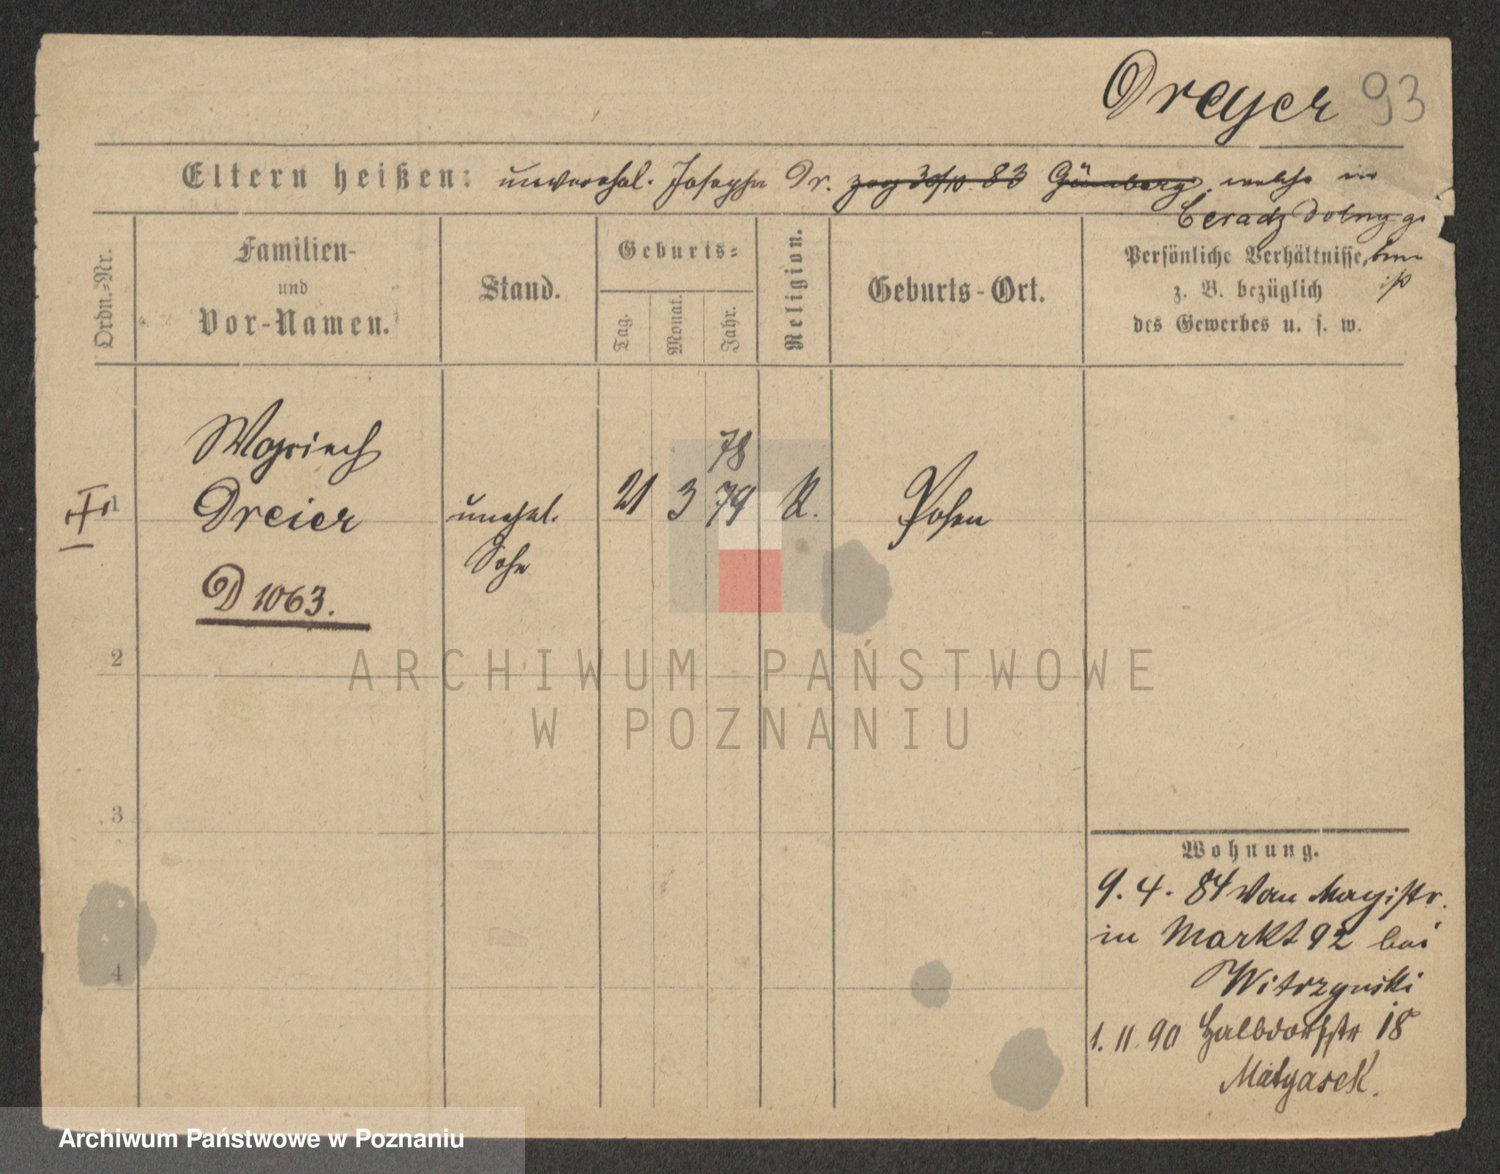 Dreyer 93
Eltern heißen: unverehel. Josepha Dr. zog 30/10. 83 welche in
Ceradz Dolny ge
Ordn.-Nr.
Familien-
und
Vor-Namen.
Stand.
Geburts-
Tag.
Monat.
Jahr.
Religion.
Geburts-Ort.
Persönliche Verhältnisse,
z. B. bezüglich
des Gewerbes u. s. w.
ist
78
Woyciech
Dreier
unehel.
Sohn
21 3 79 K. Posen
D 1063.
2
3
4
Wohnung.
9. 4. 84 Von Magistr.
in Markt 92 bei
Witrzynski
1. 11. 90 Halbdorfstr 18
Matyasek.
ARCHIWUM PAŃSTWOWE
W POZNANIU
Archiwum Państwowe w Poznaniu